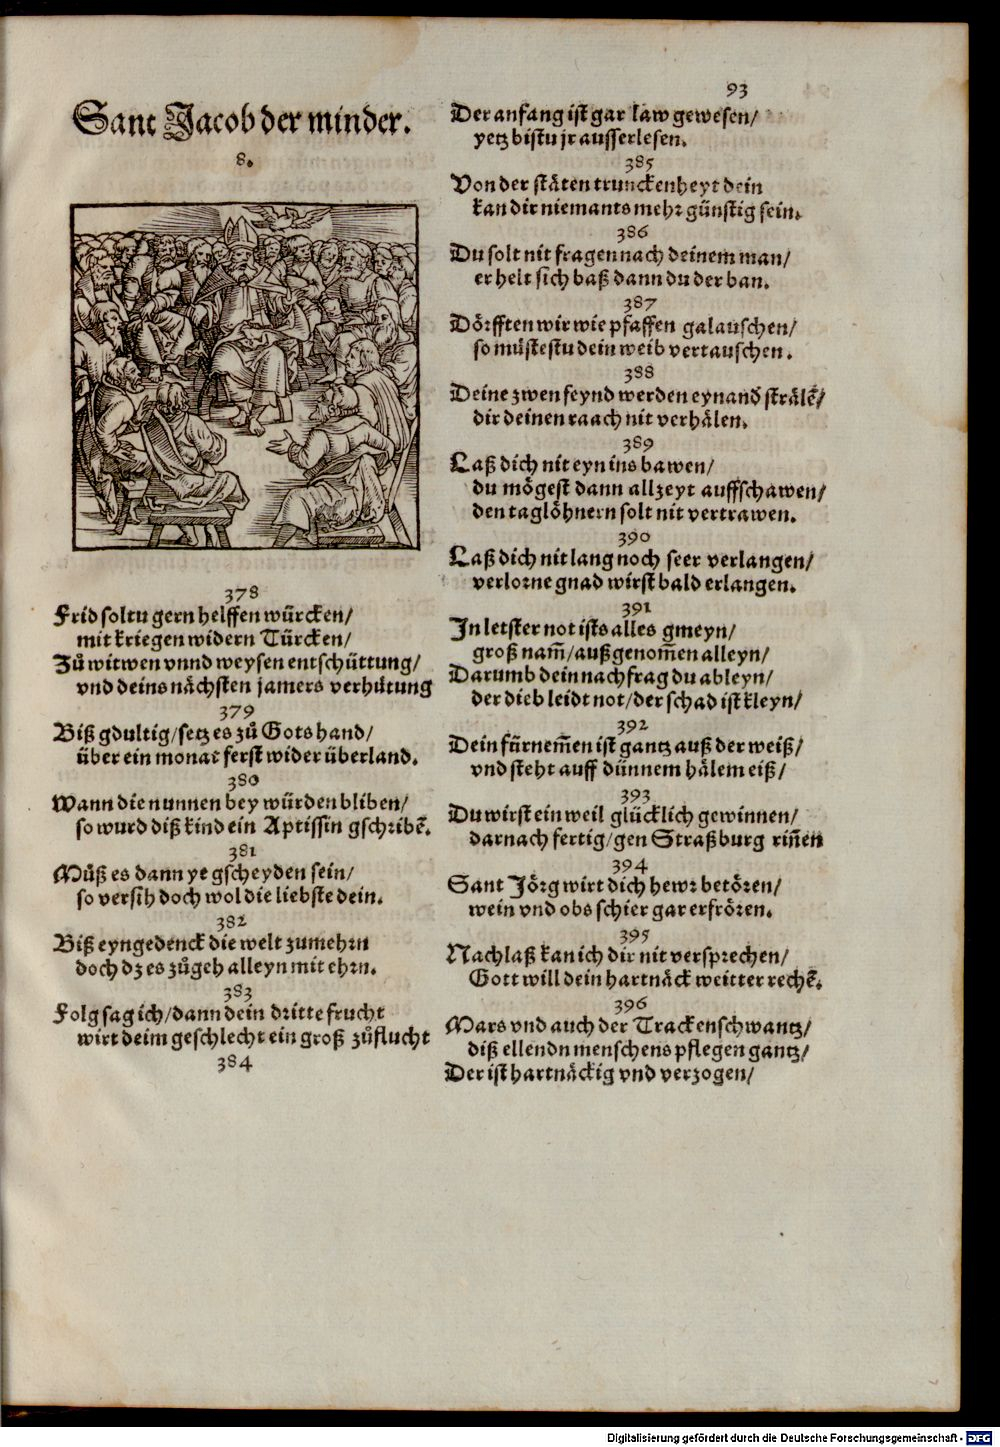 93
Sant Jacob der minder.
8.
378
Frid soltu gern helffen würcken/
mit kriegen widern Türcken/
Zů witwen vnnd weysen entschüttung/
vnd deins nächsten jamers verhütung
379
Biß gdultig/setz es zů Gots hand/
über ein monat ferst wider überland.
380
Wann die nunnen bey würden bliben/
so wurd diß kind ein Aptissin gschribẽ.
381
Můß es dann ye gscheyden sein/
so versih doch wol die liebste dein.
382
Biß eyngedenck die welt zumehrn
doch dz es zůgeh alleyn mit ehrn.
383
Folg sag ich/dann dein dritte frucht
wirt deim geschlecht ein groß zůflucht
384
Der anfang ist gar law gewesen/
yetz bistu jr ausserlesen.
385
Von der stäten trunckenheyt dein
kan dir niemants mehr günstig sein.
386
Du solt nit fragen nach deinem man/
er helt sich baß dann du der ban.
387
Dörfften wir wie pfaffen galauschen/
so müstestu dein weib vertauschen.
388
Deine zwen feynd werden eynand̃ strälẽ/
dir deinen raach nit verhälen.
389
Laß dich nit eyn ins bawen/
du mögest dann allzeyt auffschawen/
den taglöhnern solt nit vertrawen.
390
Laß dich nit lang noch seer verlangen/
verlorne gnad wirst bald erlangen.
391
In letster not ists alles gmeyn/
groß nam̃/außgenom̃en alleyn/
Darumb dein nachfrag du ableyn/
der dieb leidt not/der schad ist kleyn/
392
Dein fürnem̃en ist gantz auß der weiß/
vnd steht auff dünnem hälem eiß/
393
Du wirst ein weil glücklich gewinnen/
darnach fertig/gen Straßburg rin̄en
394
Sant Jörg wirt dich hewr betören/
wein vnd obs schier gar erfrören.
395
Nachlaß kan ich dir nit versprechen/
Gott will dein hartnäck weitter rechẽ.
396
Mars vnd auch der Trackenschwantz/
diß ellendn menschens pflegen gantz/
Der ist hartnäckig vnd verzogen/
Digitalisierung gefördert durch die Deutsche Forschungsgemeinschaft - DFG